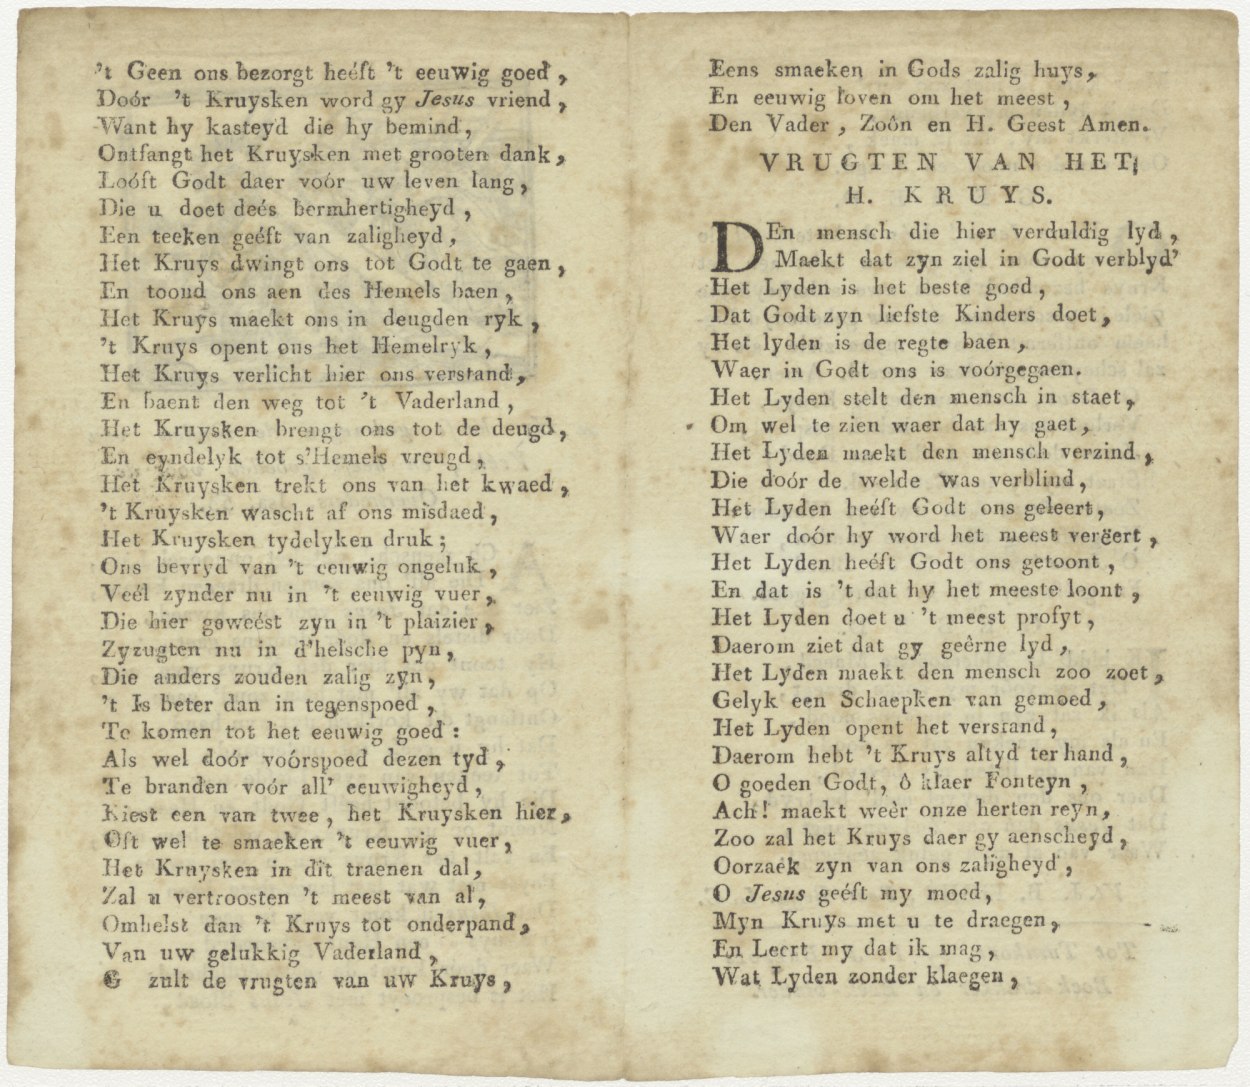 't Geen ons bezorgt heéft 't eeuwig goed,
Doór 't Kruysken word gy Jesus vriend,
Want hy kasteyd die hy bemind,
Ontfangt het Kruysken met grooten dank,
Looft Godt daer voór uw leven lang,
Die u doet deés bermhertigheyd,
Een teeken geéft van zaligheyd,
Het Kruys dwingt ons tot Godt te gaen,
En toond ons aen des Hemels baen,
Het Kruys maekt ons in deugden ryk,
't Kruys opent ons het Hemelryk,
Het Kruys verlicht hier ons verstand,
En baent den weg tot 't Vaderland,
Het Kruysken brengt ons tot de deugd,
En eyndelyk tot s'Hemels vreugd,
Het Kruysken trekt ons van het kwaed,
't Kruysken wascht af ons misdaed,
Het Kruysken tydelyken druk;
Ons bevryd van 't eeuwig ongeluk,
Veél zynder nu in 't eeuwig vuer,
Die hier geweést zyn in 't plaizier,
Zyzugten nu in d'helsche pyn,
Die anders zouden zalig zyn,
't Is beter dan in tegenspoed,
Te komen tot het eeuwig goed:
Als wel doór voórspoed dezen tyd,
Te branden voór all' eeuwigheyd,
Kiest een van twee, het Kruysken hier,
Oft wel te smaeken 't eeuwig vuer,
Het Kruysken in dit traenen dal,
Zal u vertroosten 't meest van al,
Omhelst dan 't Kruys tot onderpand,
Van uw gelukkig Vaderland,
G zult de vrugten van uw Kruys,
Eens smaeken in Gods zalig huys,
En eeuwig loven om het meest,
Den Vader, Zoôn en H. Geest Amen.
VRUGTEN VAN HET
H. KRUYS.
DEn mensch die hier verduldig lyd,
Maekt dat zyn ziel in Godt verblyd'
Het Lyden is het beste goed,
Dat Godt zyn liefste Kinders doet,
Het lyden is de regte baen,
Waer in Godt ons is voórgegaen.
Het Lyden stelt den mensch in staet,
Om wel te zien waer dat hy gaet,
Het Lyden maekt den mensch verzind,
Die doór de welde was verblind,
Het Lyden heéft Godt ons geleert,
Waer doór hy word het meest verëert,
Het Lyden heéft Godt ons getoont,
En dat is 't dat hy het meeste loont,
Het Lyden doet u 't meest profyt,
Daerom ziet dat gy geêrne lyd,
Het Lyden maekt den mensch zoo zoet,
Gelyk een Schaepken van gemoed,
Het Lyden opent het verstand,
Daerom hebt 't Kruys altyd ter hand,
O goeden Godt, ô klaer Fonteyn,
Ach! maekt weêr onze herten reyn,
Zoo zal het Kruys daer gy aenscheyd,
Oorzaek zyn van ons zaligheyd,
O Jesus geéft my moed,
Myn Kruys met u te draegen,
En Leert my dat ik mag,
Wat Lyden zonder klaegen,